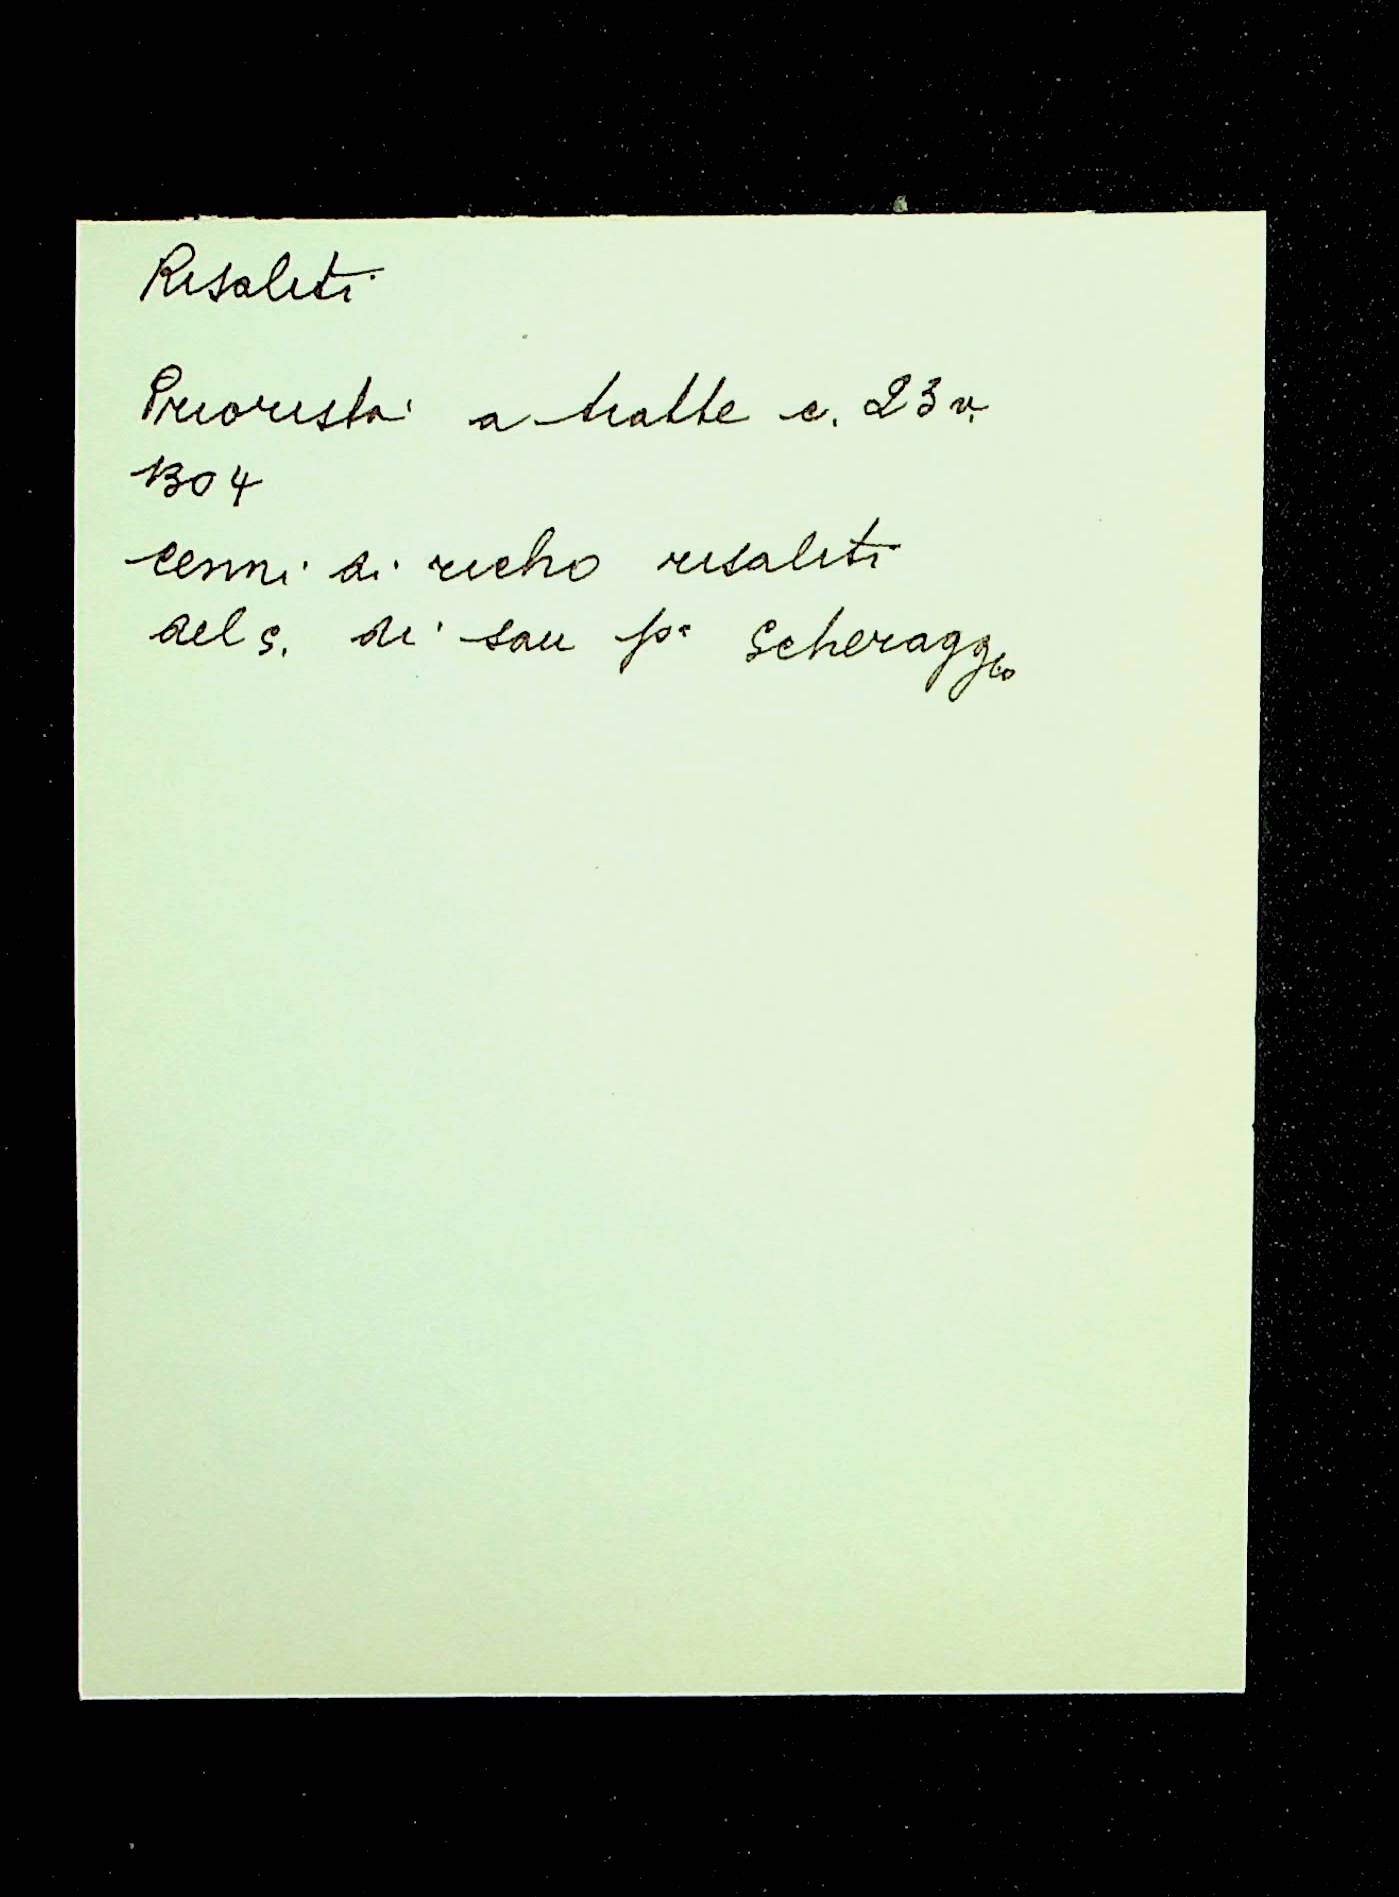 Risaliti
Priorista a tratte c. 23 v.
1304
cenni di richo risaliti
del s. di san po Scheraggio